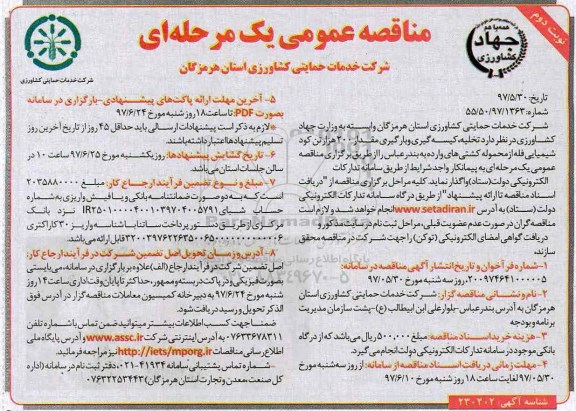 نوبت دوم
همه با هم
جهاد
کشاورزی
مناقصه عمومی یک مرحله‌ای
شرکت خدمات حمایتی کشاورزی استان هرمزگان
شرکت خدمات حمایتی کشاورزی
تاریخ: ۹۷/۵/۳۰
شماره: ۵۵/۵۰/۹۷/۱۳۶۳
شرکت خدمات حمایتی کشاورزی استان هرمزگان وابسته به وزارت جهاد
کشاورزی در نظر دارد تخلیه، کیسه گیری و بارگیری مقدار ۲۰۰ هزار تن کود
شیمیایی فله از محموله کشتی های وارده به بندرعباس را از طریق برگزاری مناقصه
عمومی یک مرحله ای به پیمانکار واجد شرایط از طریق سامانه تدارکات
الکترونیکی دولت (ستاد) واگذار نماید. کلیه مراحل برگزاری مناقصه از "دریافت
اسناد مناقصه تا ارائه پیشنهاد" از طریق درگاه سامانه تدارکات الکترونیکی
دولت (ستاد) به آدرس www.setadiran.ir انجام خواهد شد و لازم است
مناقصه گران در صورت عدم عضویت قبلی، مراحل ثبت نام در سایت مذکور و
دریافت گواهی امضای الکترونیکی (توکن) را جهت شرکت در مناقصه محقق
سازند
۱- شماره فراخوان و تاریخ انتشار آگهی مناقصه در سامانه:
۲۰۰۹۷۴۶۴۱۰۰۰۰۰۵، روز سه شنبه مورخ ۹۷/۰۵/۳۰
۲- نام و نشانی مناقصه گزار: شرکت خدمات حمایتی کشاورزی استان
هرمزگان به آدرس بندرعباس - بلوار علی ابن ابیطالب (ع) - پشت سازمان مدیریت
برنامه و بودجه
۳- هزینه خرید اسناد مناقصه: مبلغ ۵۰۰,۰۰۰ ریال می باشد که از درگاه
بانکی موجود در سامانه تدارکات الکترونیکی دولت انجام می گیرد.
۴- مهلت زمانی دریافت اسناد مناقصه از سامانه: از روز سه شنبه مورخ
۹۷/۰۵/۳۰ لغایت ساعت ۱۸ روز شنبه مورخ ۹۷/۶/۱۰
۵- آخرین مهلت ارائه پاکت های پیشنهادی - بارگزاری در سامانه
بصورت PDF: تا ساعت ۱۸ روز شنبه مورخ ۹۷/۶/۲۴
لازم به ذکر است پیشنهادات ارسالی باید حداقل ۴۵ روز از تاریخ آخرین روز
تسلیم پیشنهادها اعتبار داشته باشند.
۶- تاریخ گشایش پیشنهادها: روز یکشنبه مورخ ۹۷/۶/۲۵ ساعت ۱۰ در
سالن جلسات استان می باشد.
۷- مبلغ و نوع تضمین فرآیند ارجاع کار: مبلغ
است که به دو صورت ضمانتنامه بانکی و یا فیش واریزی به شماره
حساب شبای نزد بانک
مرکزی از طریق دستور پرداخت ساتنا با شناسه واریز ۳۰ کاراکتری
قابل ارائه می باشد.
۸- آدرس و زمان تحویل اصل تضمین شرکت در فرآیند ارجاع کار:
اصل تضمین شرکت در فرآیند ارجاع (الف) علاوه بر بارگزاری در سامانه، می بایستی
بصورت فیزیکی و در پاکت در بسته و ممهور، حداکثر تا پایان وقت اداری ساعت ۱۴ روز
شنبه مورخ ۹۷/۶/۲۴ به دبیرخانه کمیسیون معاملات مناقصه گزار در آدرس فوق
الذکر تحویل و رسید دریافت شود.
ضمنا جهت کسب اطلاعات بیشتر میتوانید ضمن تماس با شماره تلفن
۰۷۶۳۳۶۷۸۳۱۱ به آدرس اینترنتی شرکت www.assc.ir و آدرس پایگاه ملی
اطلاع رسانی مناقصات http://iets/mporg.ir نیز مراجعه فرمائید.
- شماره تماس پشتیبانی سامانه ۴۱۹۳۴-۰۲۱، دفتر ثبت نام در سامانه (اداره
کل صنعت، معدن و تجارت استان هرمزگان) ۰۷۶۳۲۲۵۲۴۴۳
شناسه آگهی: ۲۳۰۲۰۲